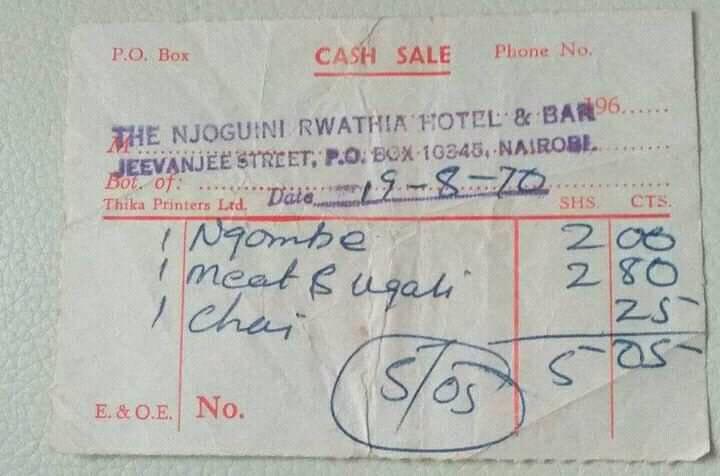 P.O. Box CASH SALE Phone No.
196......
THE NJOGUINI RWATHIA HOTEL & BAR
M
JEEVANJEE STREET, P.O. BOX 10345, NAIROBI.
Bot. of:
Date 19-8-70
Thika Printers Ltd. SHS. CTS.
1 Ngombe 2 00
1 Meat & ugali 2 80
1 Chai 25
5 05
5/05
E. & O.E. No.